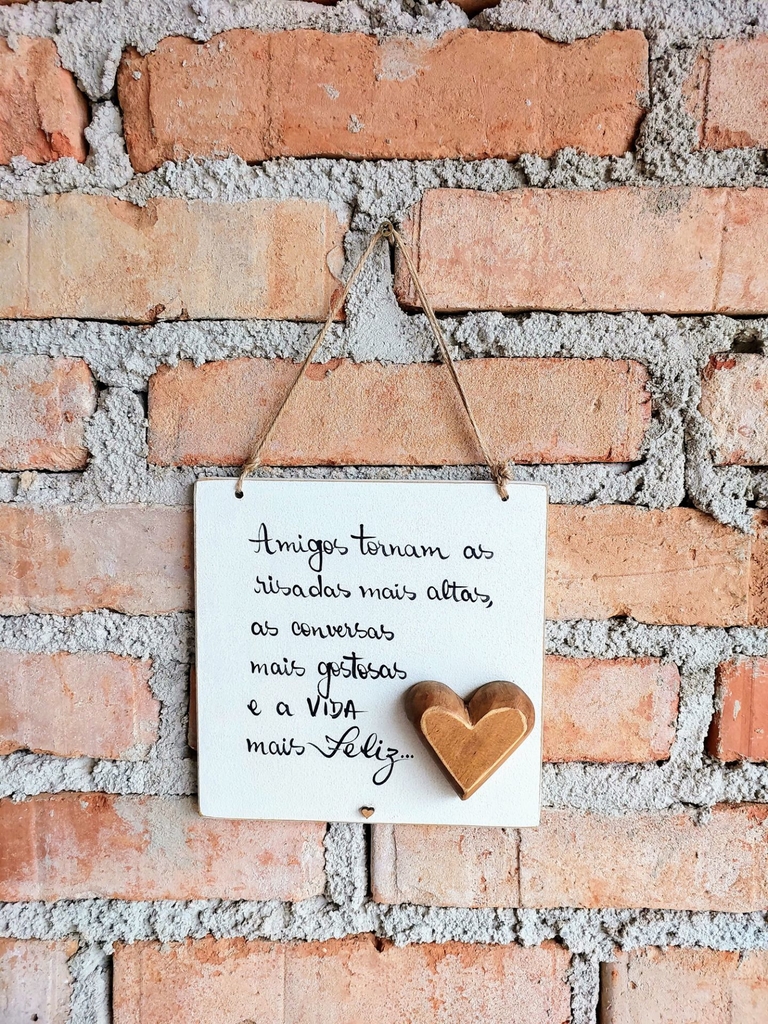 Amigos tornam as
risadas mais altas,
as conversas
mais gostosas
e a VIDA
mais Feliz...